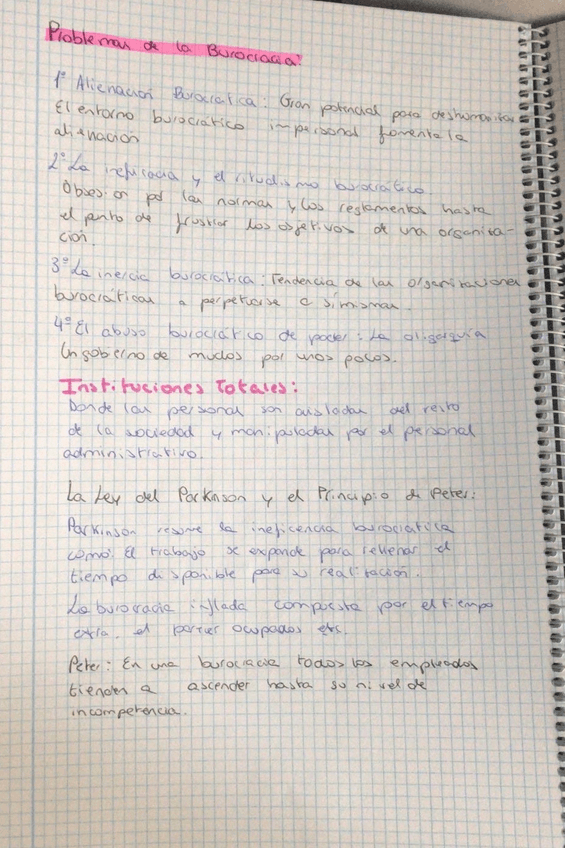 Problemas de la Burocracia:
1º Alienación Burocrática: Gran potencial para deshumanizar
El entorno burocrático impersonal fomenta la
alienación
2º La ineficacia y el ritualismo burocrático
Obsesion por las normas y los reglamentos hasta
el punto de frustrar los objetivos de una organiza-
ción.
3º La inercia burocrática: Tendencia de las organizaciones
burocráticas a perpetuarse a si mismas.
4º El abuso burocrático de poder: La oligarquía
Un gobierno de muchos por unos pocos.
Instituciones Totales:
Donde las personal son aisladas del resto
de la sociedad y manipuladas por el personal
administrativo.
La Ley del Parkinson y el Principio de Peter:
Parkinson resume la ineficencia burocratica
como: El trabajo se expande para rellenar el
tiempo disponible para su realización.
La burocracia inflada compuesta por el tiempo
extra, el parecer ocupados etc.
Peter: En una burocracia todos los empleados
tienden a ascender hasta su nivel de
incompetencia.